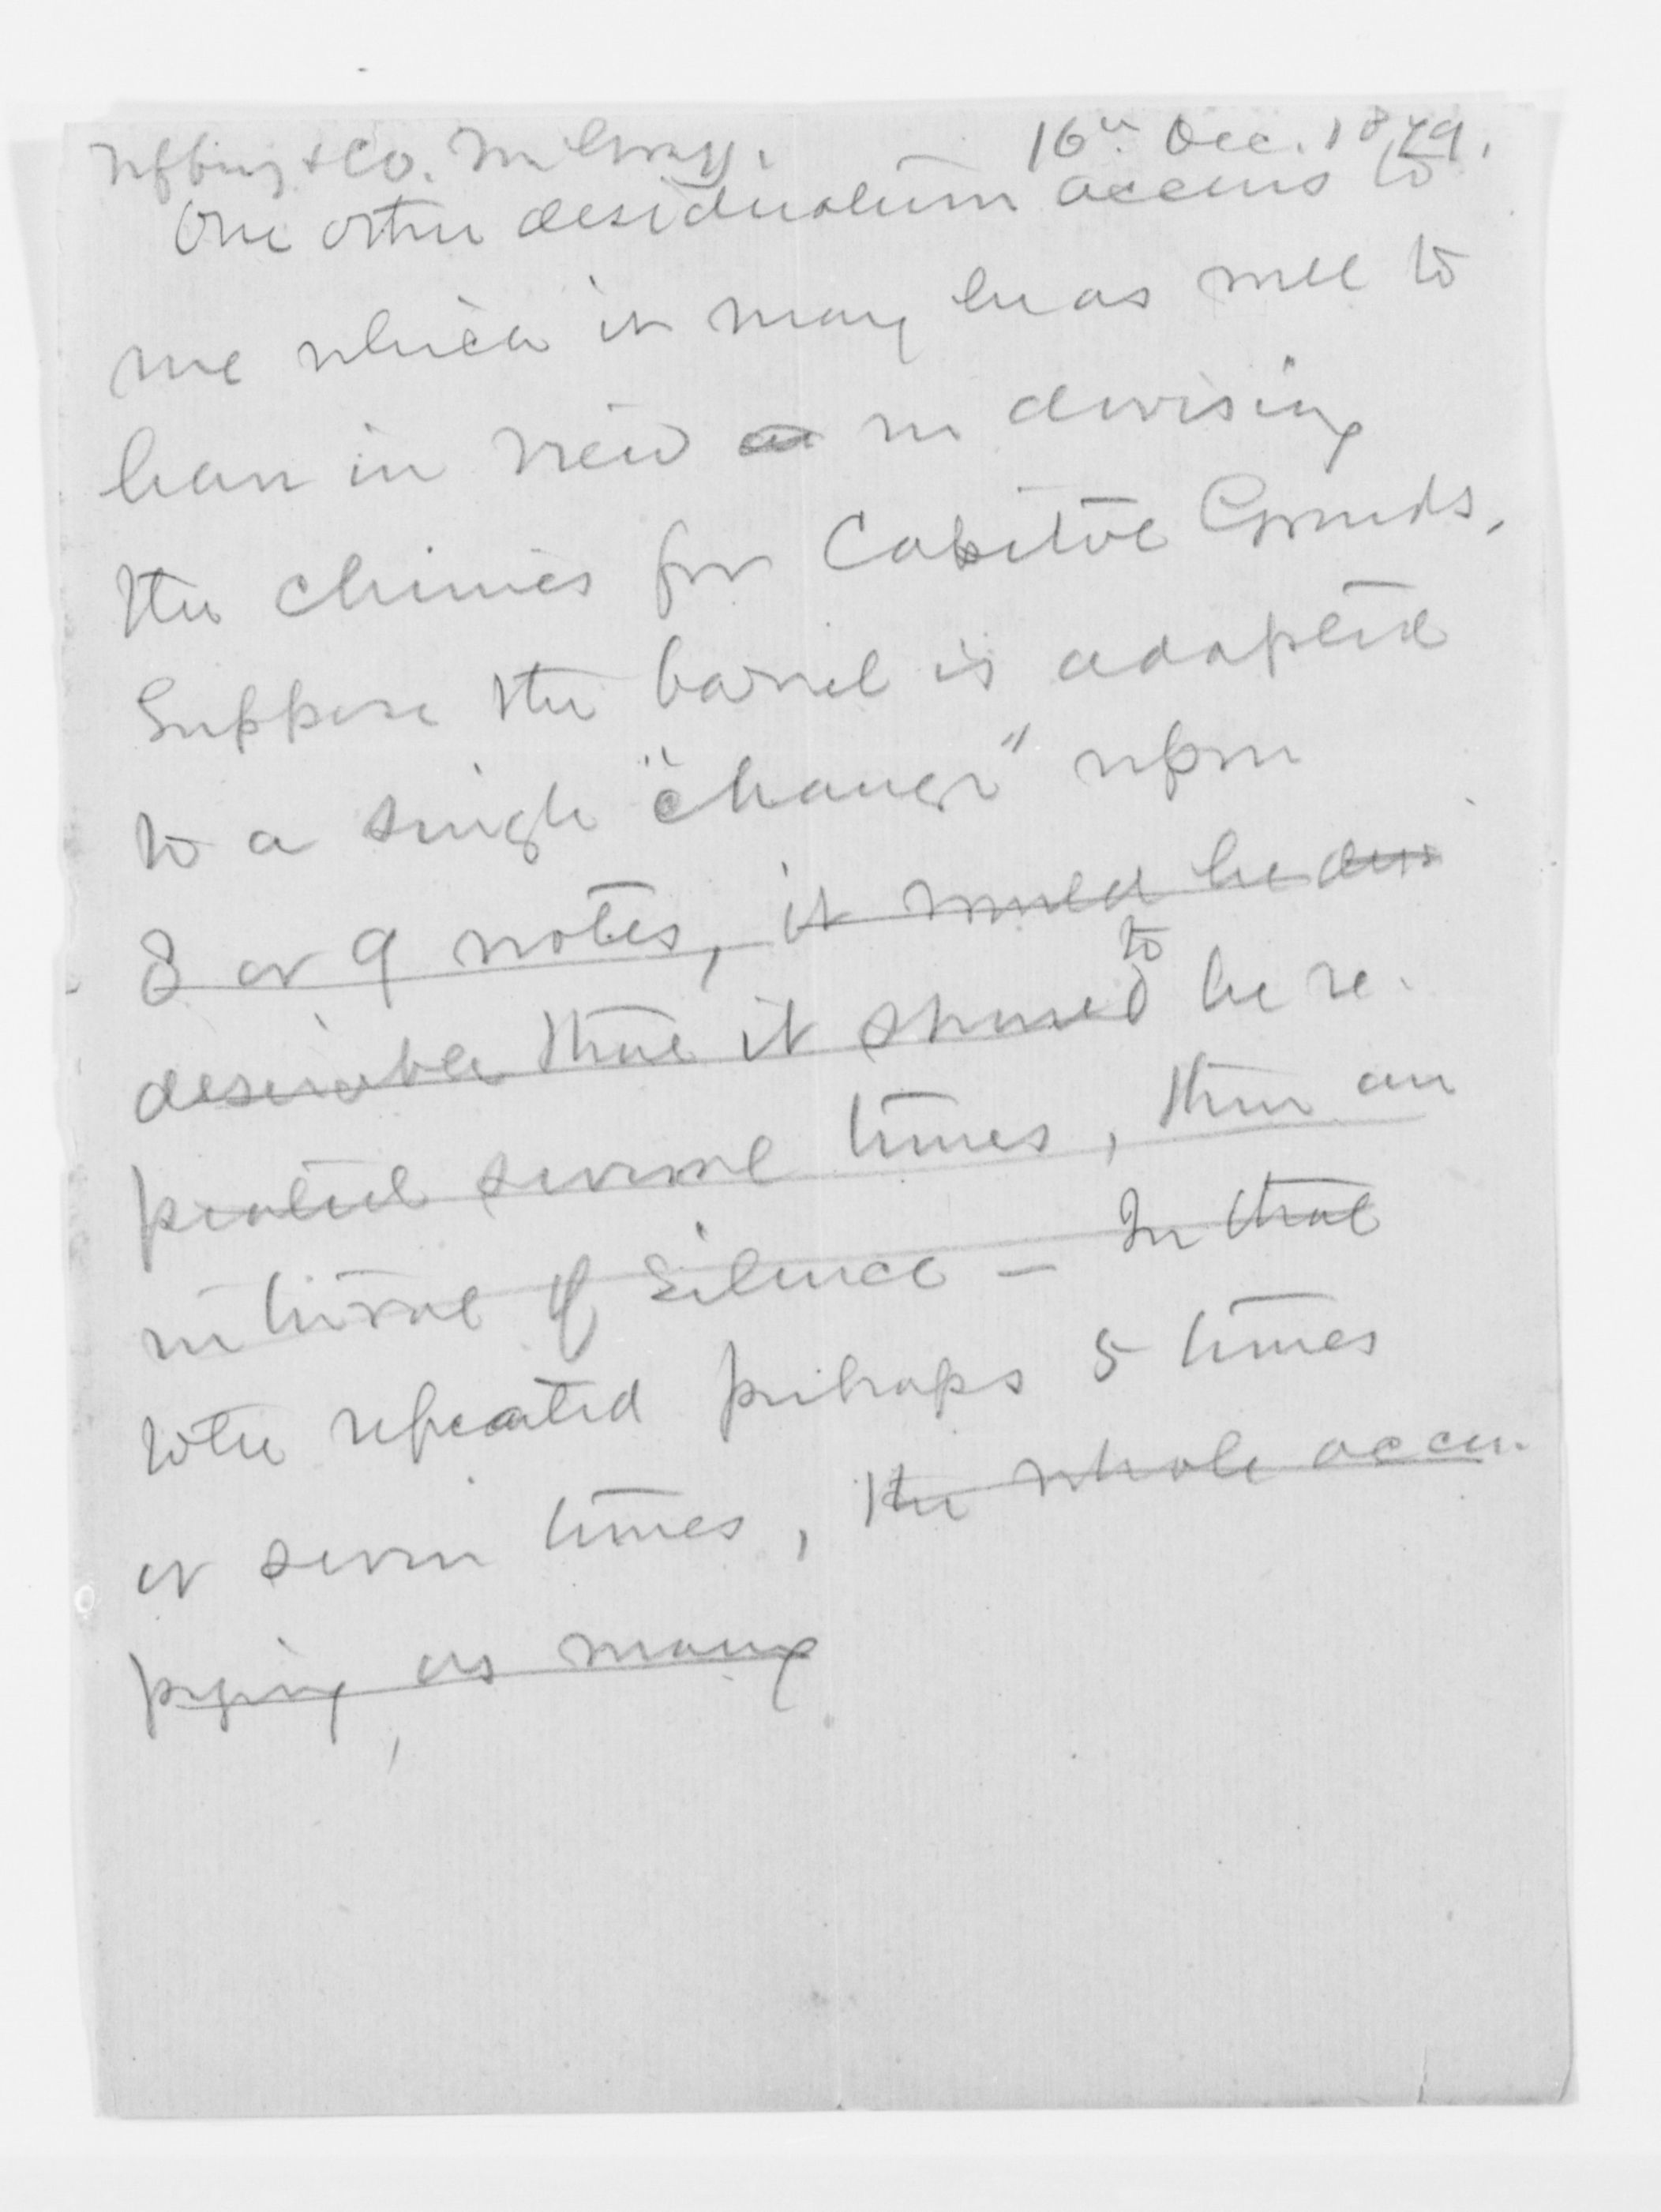 & Co. Mr 16th Dec. 1879.
One other desideratum occurs to
me which it may be as well to
bear in view in devising
the chimes for Capitol Grounds.
Suppose the barrel is adapted
to a single "change" upon
8 or 9 notes, it would be des
desirable that it should to be re-
peated several times, then an
interval of silence – In that
to be repeated perhaps 5 times
or seven times, the whole occu-
pying as many